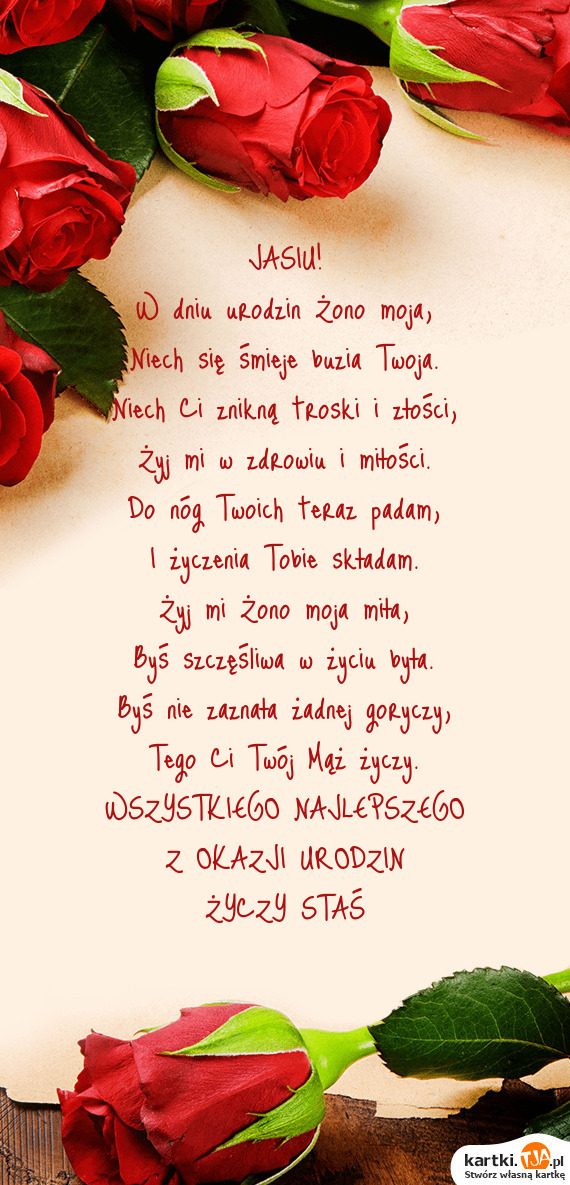 JASIU!
W dniu urodzin Żono moja,
Niech się śmieje buzia Twoja.
Niech Ci znikną troski i złości,
Żyj mi w zdrowiu i miłości.
Do nóg Twoich teraz padam,
I życzenia Tobie składam.
Żyj mi Żono moja miła,
Byś szczęśliwa w życiu była.
Byś nie zaznała żadnej goryczy,
Tego Ci Twój Mąż życzy.
WSZYSTKIEGO NAJLEPSZEGO
Z OKAZJI URODZIN
ŻYCZY STAŚ
kartki.TJA.pl
Stwórz własną kartkę